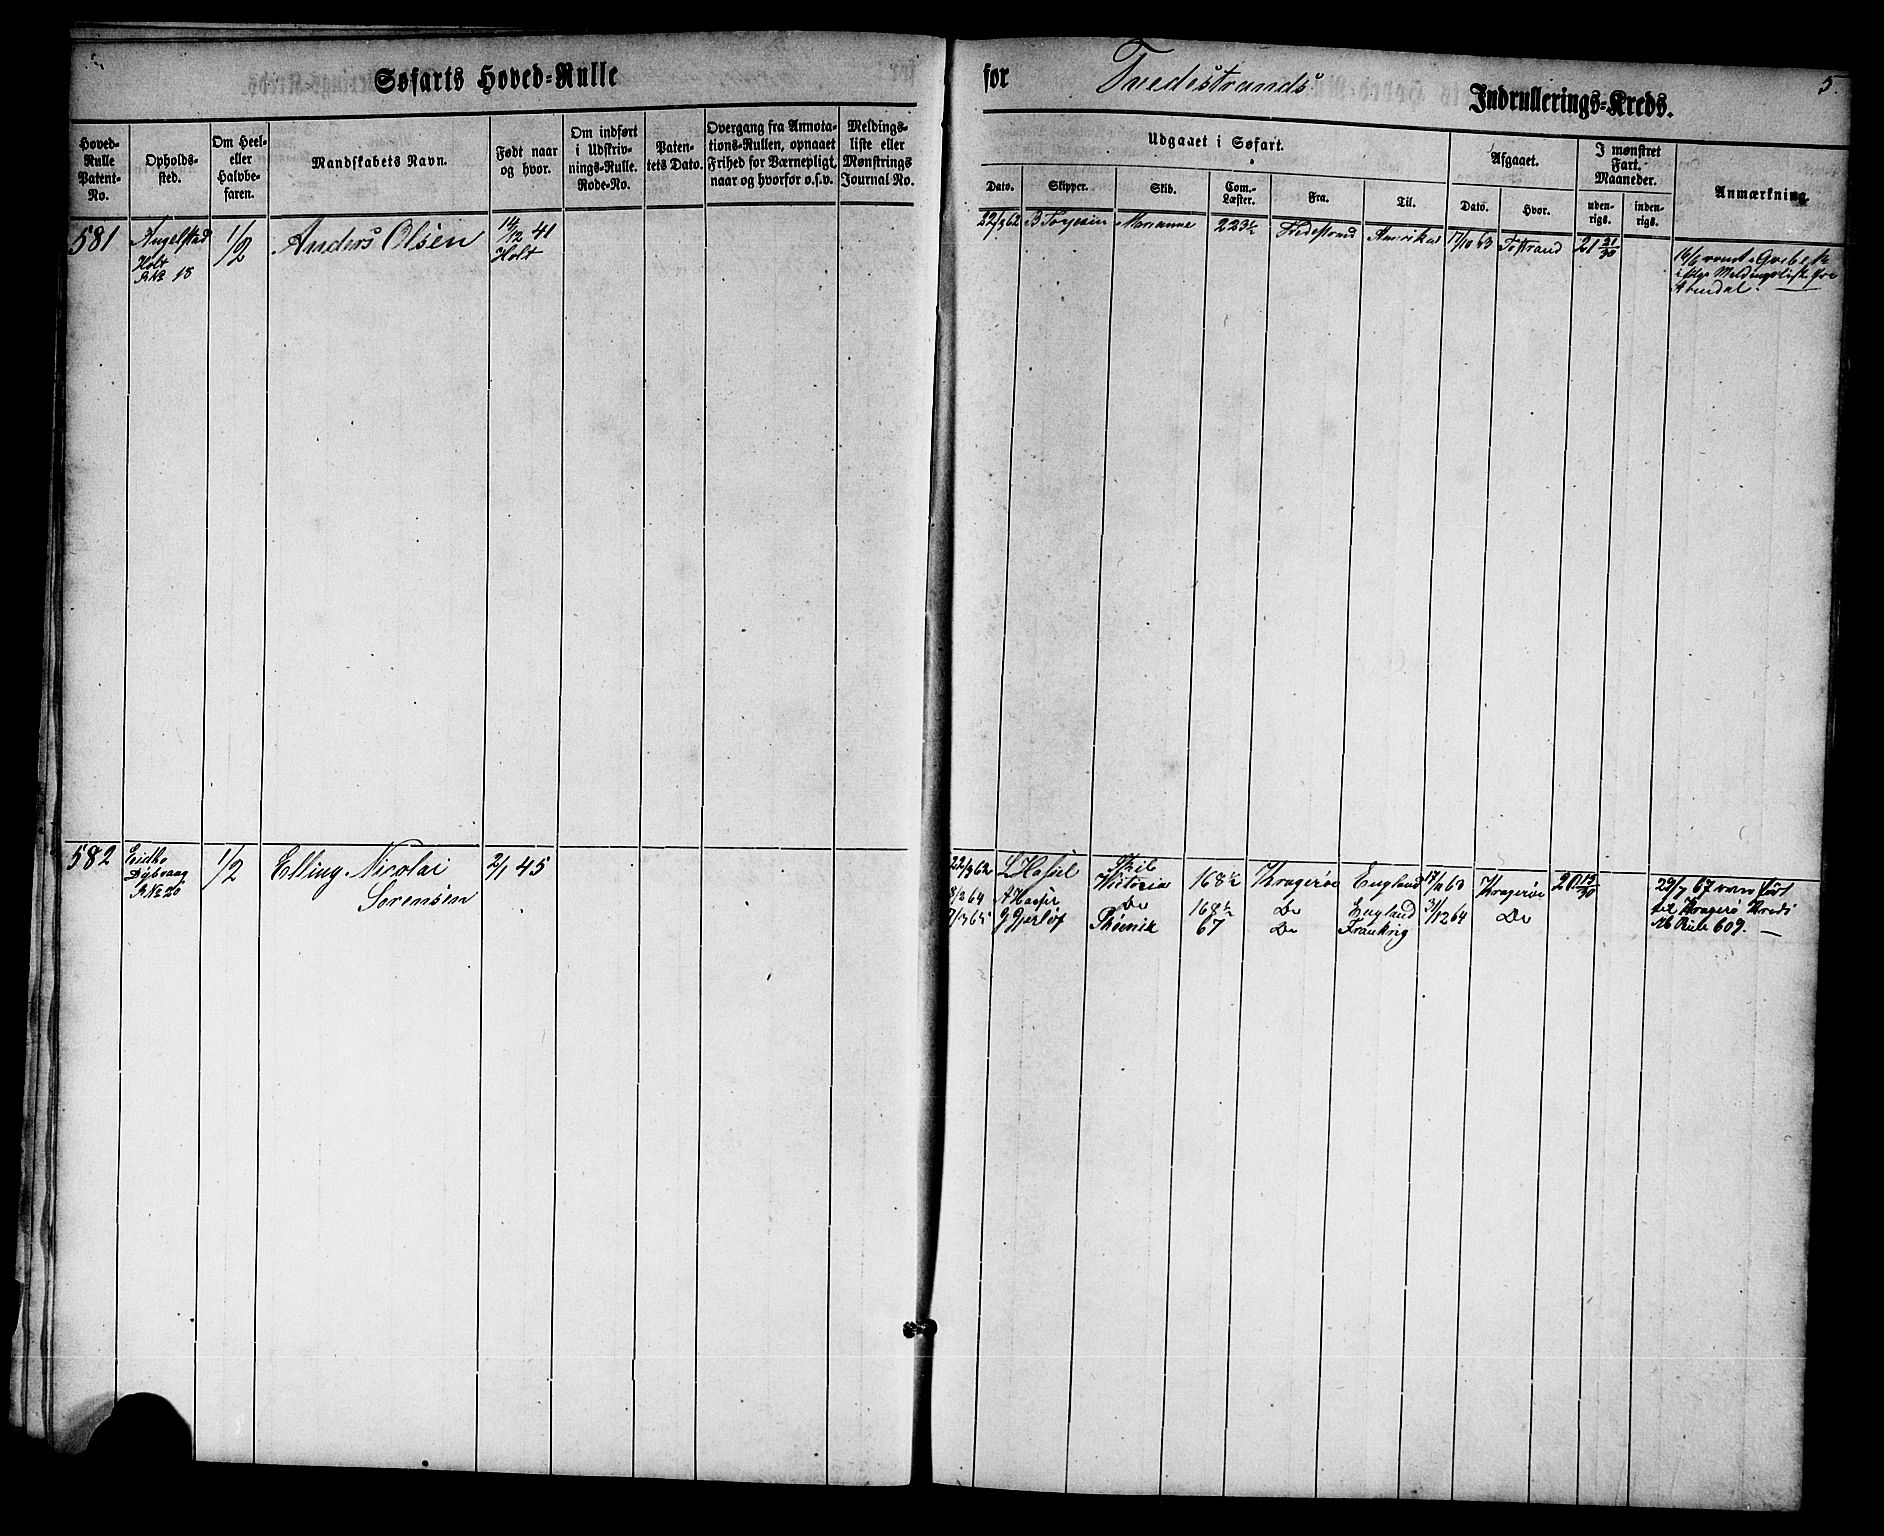 Søfarts Hoved-Rulle
for Tvedestrands Indrullerings-Kreds.
5.
Hoved-Rulle Patent-No.
Opholds-sted.
Om Heel- eller Halvbe-faren.
Mandskabets Navn.
Født naar og hvor.
Om indført i Udskriv-nings-Rulle. Rode-No.
Paten-tets Dato.
Overgang fra Annota-tions-Rullen, opnaaet Frihed for Værnepligt, naar og hvorfor o.s.v.
Meldings-liste eller Mønstrings Journal No.
Udgaaet i Søfart.
Dato.
Skipper.
Skib.
Com.-Læster.
Fra.
Til.
Afgaaet.
Dato.
Hvor.
I mønstret Fart. Maaneder.
uden-rigs.
inden-rigs.
Anmærkning.
581
Angelstad
Holt
RNo 18
1/2
Anders Olsen
14/12 41
Holt
22/3 62 B Torjesen Marianne 223½ Tvedestrand Amerika 17/10 63 T Strand 21 21/30
Meldingsliste fra
Arendal.
582
Dybvaag
RNo 20
1/2
Elling Nicolai
Sørensen
2/1 45
22/3 62
Victoria 168½ Kragerøe England 17/12 63 Kragerøe 20 15/30
8/2 64
Do 168½ Do England 31/12 64 Do
7/3 65 G Gjerløf Phøenik 67 Do Frankrig
29/7 67 rom ført
til Kragerø Kreds
Ab Rule 609.